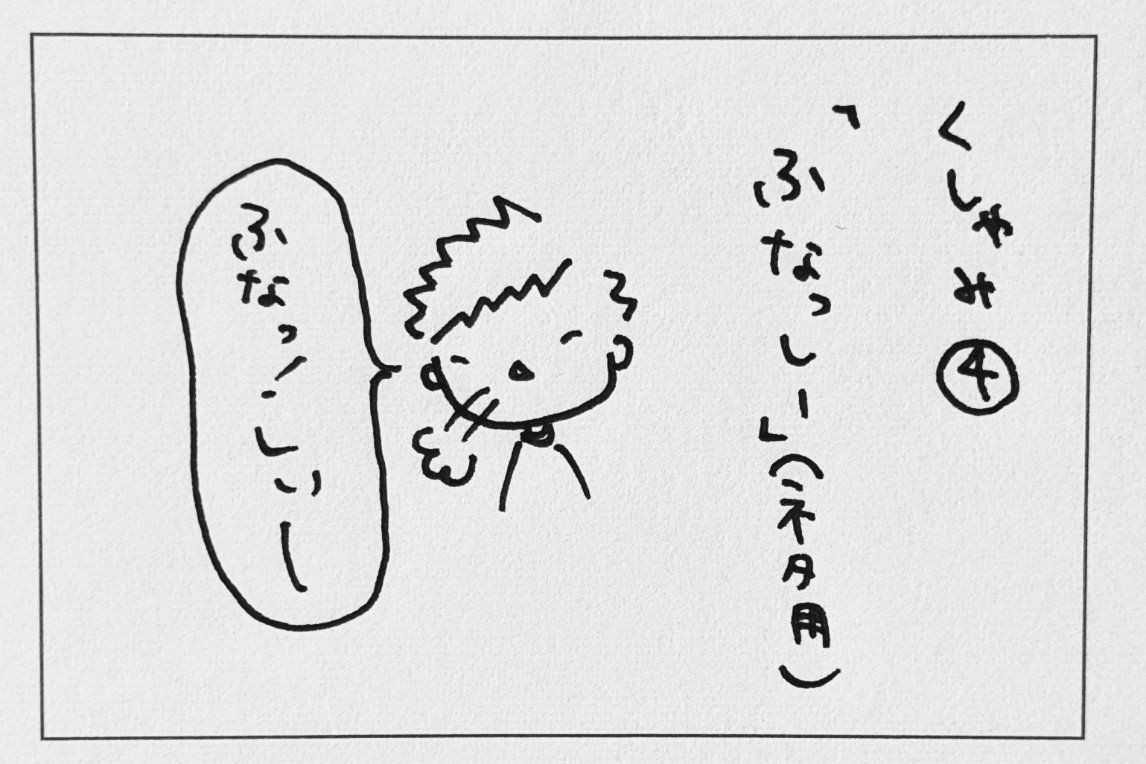 くしゃみ④
「ふなっしー」(ネタ用)
ふなっ/・しぃー